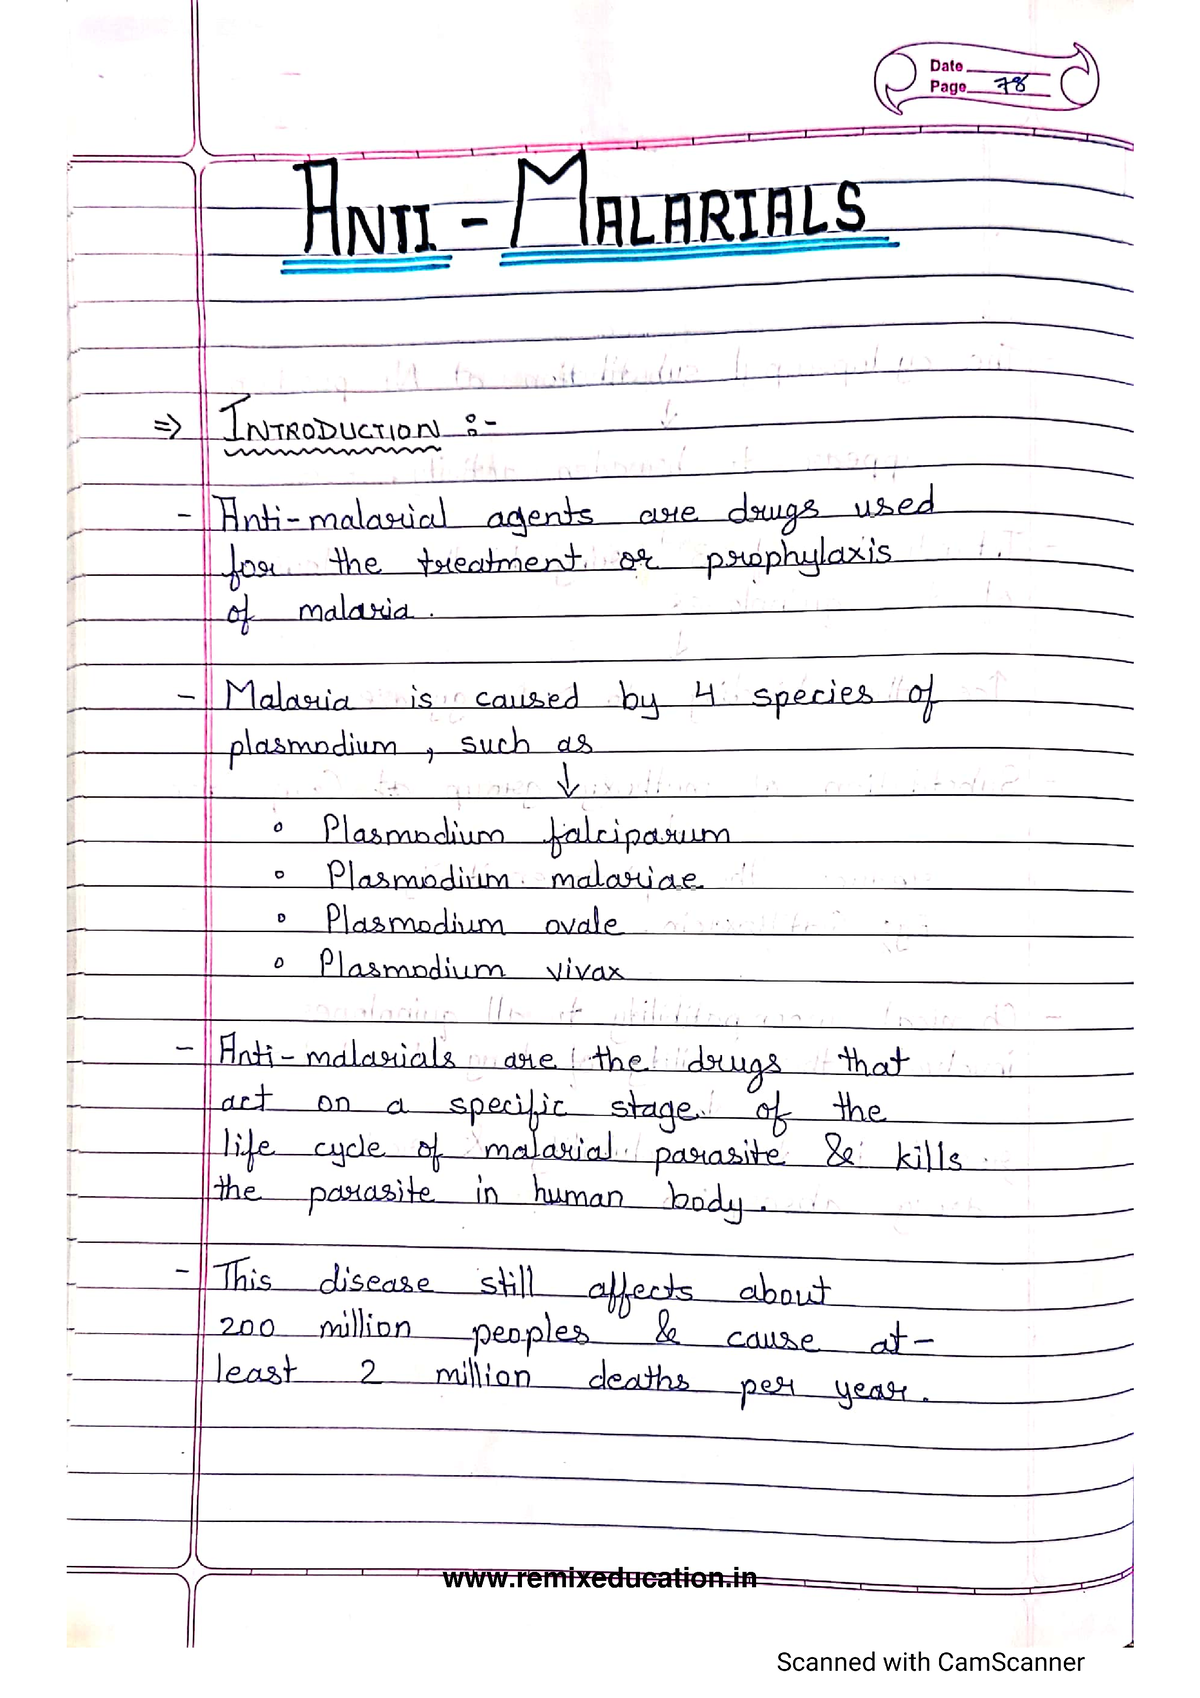 Date
Page 78
ANTI-MALARIALS
⇒ INTRODUCTION :-
- Anti-malarial agents are drugs used
for the treatment or prophylaxis
of malaria.
- Malaria is caused by 4 species of
plasmodium, such as
↓
° Plasmodium falciparum
° Plasmodium malariae
° Plasmodium ovale
° Plasmodium vivax
- Anti-malarials are the drugs that
act on a specific stage of the
life cycle of malarial parasite & kills
the parasite in human body.
- This disease still affects about
200 million peoples & cause at-
least 2 million deaths per year.
www.remixeducation.in
Scanned with CamScanner